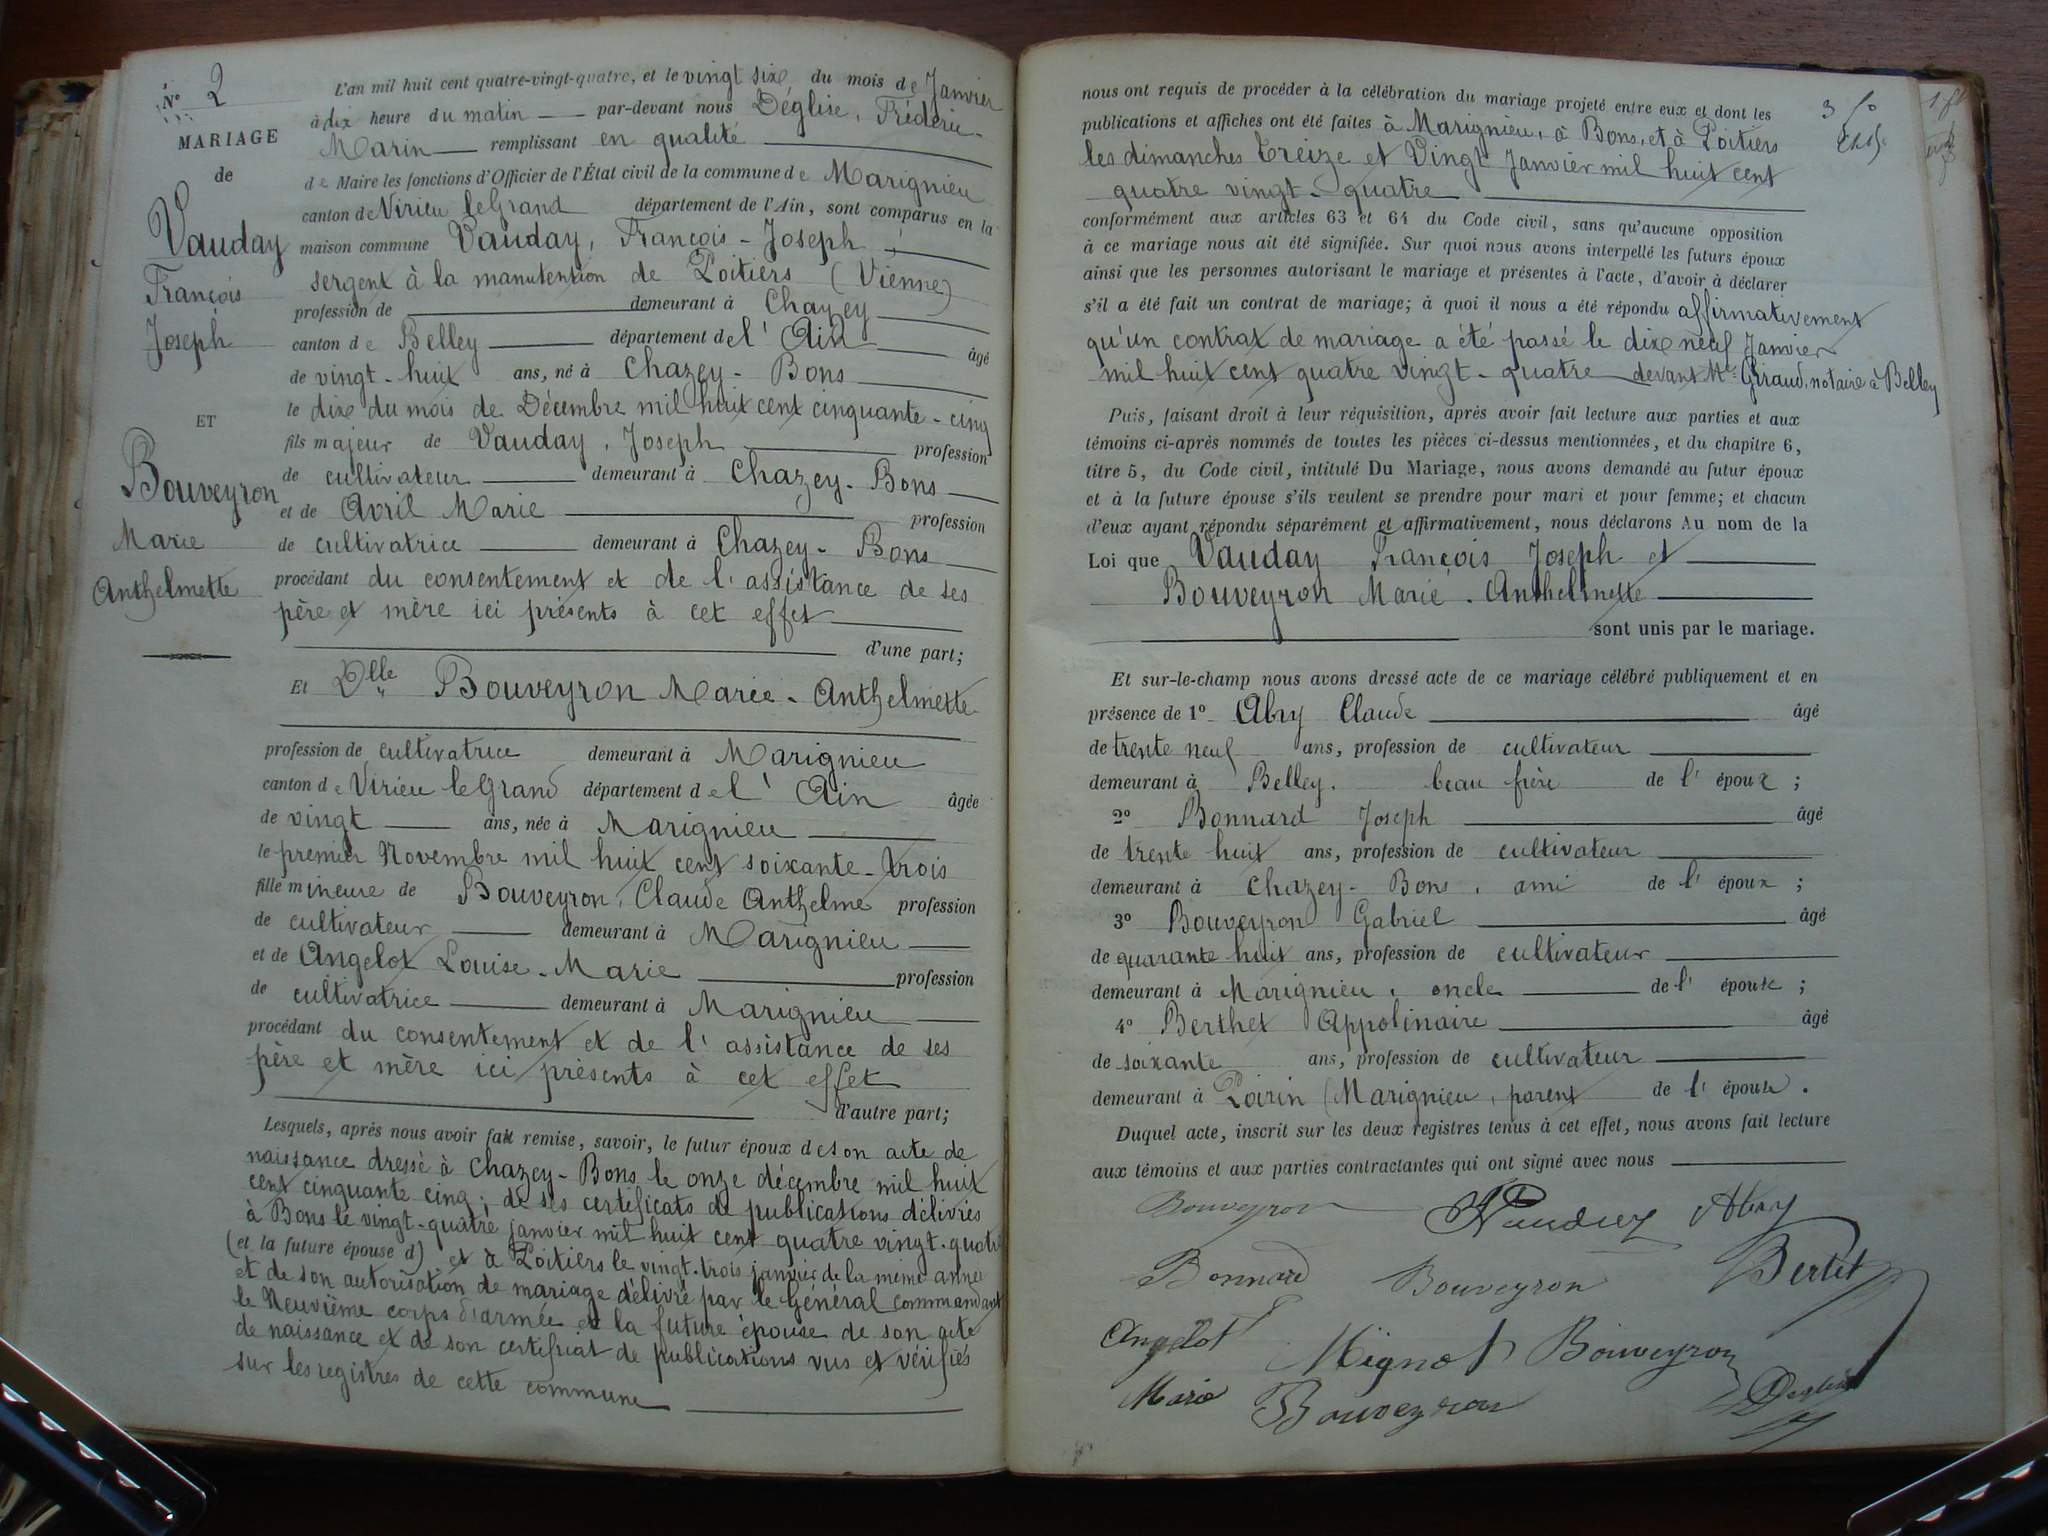 N° 2
MARIAGE
de
Vauday
François
Joseph
ET
Bouveyron
Marie
Anthelmette
L'an mil huit cent quatre-vingt-quatre, et le vingt six du mois de Janvier
à dix heure du matin par-devant nous Déglise, Frédéric-
Marin remplissant en qualité
de Maire les fonctions d'Officier de l'État civil de la commune de Marignieu
canton de Virieu leGrand département de l'Ain, sont comparus en la
maison commune Vauday, François-Joseph
sergent à la manutention de Poitiers (Vienne)
profession de demeurant à Chazey
canton de Belley département de l'Ain âgé
de vingt-huit ans, né à Chazey-Bons
le dix du mois de Décembre mil huit cent cinquante-cinq
fils majeur de Vauday, Joseph profession
de cultivateur demeurant à Chazey-Bons
et de Avril Marie profession
de cultivatrice demeurant à Chazey-Bons
procédant du consentement et de l'assistance de ses
père et mère ici présents à cet effet
d'une part;
Et Dlle Bouveyron Marie-Anthelmette
profession de cultivatrice demeurant à Marignieu
canton de Virieu leGrand département de l'Ain âgée
de vingt ans, née à Marignieu
le premier Novembre mil huit cent soixante-trois
fille mineure de Bouveyron, Claude Anthelme profession
de cultivateur demeurant à Marignieu
et de Angelot Louise-Marie profession
de cultivatrice demeurant à Marignieu
procédant du consentement et de l'assistance de ses
père et mère ici présents à cet effet
d'autre part;
Lesquels, après nous avoir fait remise, savoir, le futur époux de son acte de
naissance dressé à Chazey-Bons le onze décembre mil huit
cent cinquante cinq; de ses certificats de publications délivrés
à Bons le vingt-quatre janvier mil huit cent quatre vingt-quatre
(et la future épouse d) et à Poitiers le vingt-trois janvier de la même année
et de son autorisation de mariage délivré par le Général commandant
le Neuvième corps d'armée et la future épouse de son acte
de naissance et de son certificat de publications vus et vérifiés
sur les registres de cette commune
nous ont requis de procéder à la célébration du mariage projeté entre eux et dont les
publications et affiches ont été faites à Marignieu, à Bons, et à Poitiers
les dimanches treize et Vingt Janvier mil huit cent
quatre vingt-quatre
conformément aux articles 63 et 64 du Code civil, sans qu'aucune opposition
à ce mariage nous ait été signifiée. Sur quoi nous avons interpellé les futurs époux
ainsi que les personnes autorisant le mariage et présentes à l'acte, d'avoir à déclarer
s'il a été fait un contrat de mariage; à quoi il nous a été répondu affirmativement
qu'un contrat de mariage a été passé le dix neuf Janvier
mil huit cent quatre vingt-quatre devant Me Giraud, notaire à Belley
Puis, faisant droit à leur réquisition, après avoir fait lecture aux parties et aux
témoins ci-après nommés de toutes les pièces ci-dessus mentionnées, et du chapitre 6,
titre 5, du Code civil, intitulé Du Mariage, nous avons demandé au futur époux
et à la future épouse s'ils veulent se prendre pour mari et pour femme; et chacun
d'eux ayant répondu séparément et affirmativement, nous déclarons Au nom de la
Loi que Vauday François Joseph et
Bouveyron Marie-Anthelmette
sont unis par le mariage.
Et sur-le-champ nous avons dressé acte de ce mariage célébré publiquement et en
présence de 1° Abry Claude âgé
de trente neuf ans, profession de cultivateur
demeurant à Belley, beau frère de l'époux;
2° Bonnard Joseph âgé
de trente huit ans, profession de cultivateur
demeurant à Chazey-Bons, ami de l'époux;
3° Bouveyron Gabriel âgé
de quarante huit ans, profession de cultivateur
demeurant à Marignieu, oncle de l'épouse;
4° Berthet Appolinaire âgé
de soixante ans, profession de cultivateur
demeurant à Poirin (Marignieu, parent de l'épouse.
Duquel acte, inscrit sur les deux registres tenus à cet effet, nous avons fait lecture
aux témoins et aux parties contractantes qui ont signé avec nous
Bouveyron Vauday Abry
Bonnard Bouveyron Bertet
Angelot Mignot Bouveyron
Marie Bouveyron